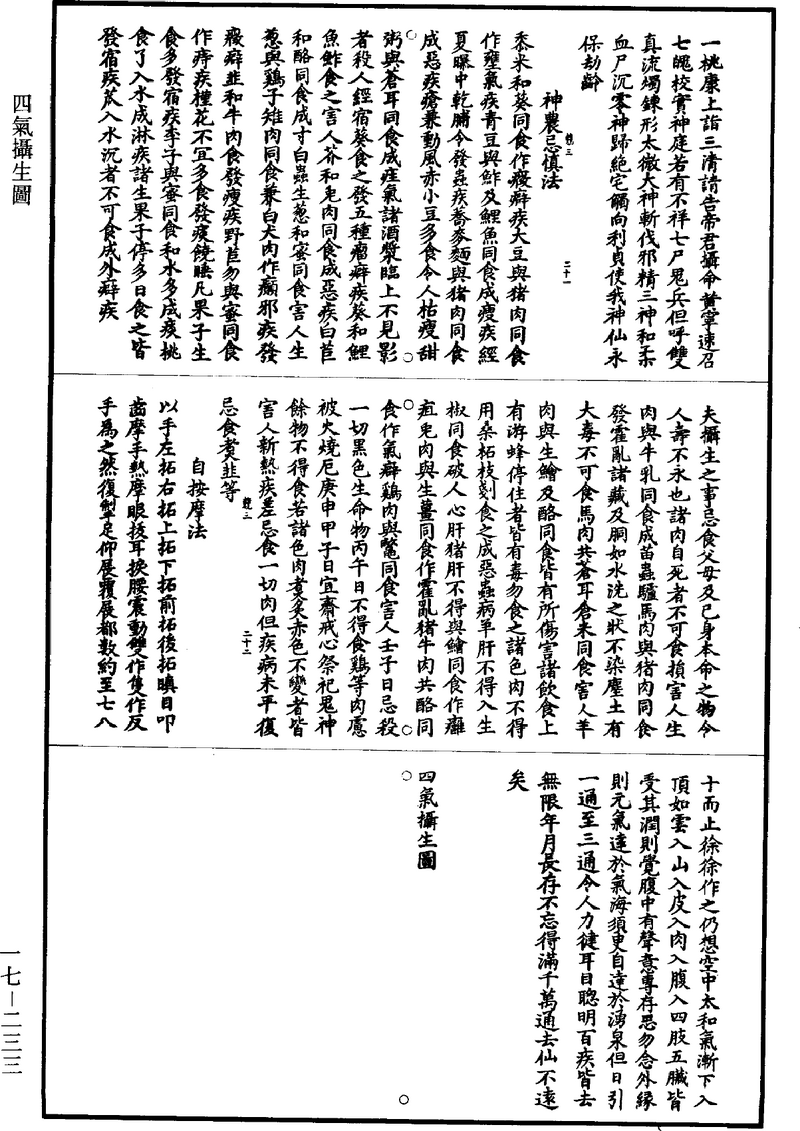 四氣攝生圖
一桃康上詣三清請告帝君攝命黃寧速召
七魄校實神庭若有不祥七尸鬼兵但呼雙
真流燭鍊形太微大神斬伐邪精三神和柔
血尸沉零神歸絕宅觸向利貞使我神仙永
保劫齡
神農忌慎法
黍米和葵同食作癥癖疾大豆與猪肉同食
作壅氣疾青豆與鮓及鯉魚同食成瘦疾經
夏曝中乾脯令發蟲疾蕎麥麵與猪肉同食
成惡疾瘡兼動風赤小豆多食令人枯瘦甜
粥與蒼耳同食成疰氣諸酒漿臨上不見影
者殺人經宿葵食之發五種瘤癖疾葵和鯉
魚鮓食之害人芥和兎肉同食成惡疾白苣
和酪同食成寸白蟲生葱和蜜同食害人生
葱與鷄子雉肉同食兼白犬肉作癩邪疾發
癥癖韭和牛肉食發瘦疾野苣勿與蜜同食
作痔疾橦花不宜多食發痰饒睡凡果子生
食多發宿疾李子與蜜同食和水多成痰桃
食了入水成淋疾諸生果子停多日食之皆
發宿疾苽入水沉者不可食成外癖疾
二十一
夫攝生之事忌食父母及已身本命之物令
人壽不永也諸肉自死者不可食損害人生
肉與牛乳同食成苗蟲驢馬肉與猪肉同食
發霍亂諸藏及胴如水洗之狀不染塵土有
大毒不可食馬肉共蒼耳倉米同食害人羊
肉與生鱠及酪同食皆有所傷害諸飲食上
有游蜂停住者皆有毒勿食之諸色肉不得
用桑柘枝剗食之成惡蟲病羊肝不得入生
椒同食破人心肝猪肝不得與鱠同食作癰
疽兎肉與生薑同食作霍亂猪牛肉共酪同
食作氣癖鷄肉與鼈同食害人壬子日忌殺
一切黑色生命物丙午日不得食鷄等肉慮
被火燒厄庚申甲子日宜齋戒心祭祀鬼神
餘物不得食若諸色肉煑炙赤色不變者皆
害人新熱疾差忌食一切肉但疾病未平復
忌食煑韭等
二十二
自按摩法
以手左拓右拓上拓下拓前拓後拓瞋目叩
齒摩手熱摩眼拔耳挨腰震動雙作隻作反
手為之然復掣足仰展覆展都數約至七八
十而止徐徐作之仍想空中太和氣漸下入
頂如雲入山入皮入肉入腹入四肢五臟皆
受其潤則覺腹中有聲意專存思勿念外緣
則元氣達於氣海須臾自達於湧泉但日引
一通至三通令人力健耳目聰明百疾皆去
無限年月長存不忘得滿千萬通去仙不遠
矣
四氣攝生圖
一七－二三三